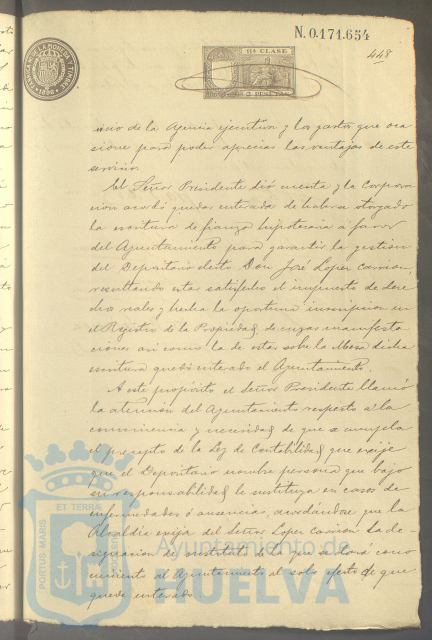 N.0.171.654
11ª CLASE
2 PESETAS
448
vicio de la Agencia ejecutiva y los gastos que oca
sione para poder apreciar las ventajas de este
servicio.
El Señor Presidente dió cuenta y la Corpora
cion acordó quedar enterada de haberse otorgado
la escritura de fianza hipotecaria á favor
del Ayuntamiento para garantir la gestión
del Depositario electo Don José Lopez Carrion,
resultando esta satisfecho el impuesto de dere
chos reales y hecha la oportuna inscripcion en
el Registro de la Propiedad, de cuyas manifesta
ciones asi como la de estar sobre la Mesa dicha
escritura quedó enterado el Ayuntamiento.
A este propósito el Señor Presidente llamó
la atencion del Ayuntamiento respecto á la
conveniencia y necesidad de que se cumpla
el precepto de la Ley de Contabilidad, que exije
que el Depositario nombre persona que bajo
su responsabilidad le sustituya en casos de
enfermedades ó ausencias, acordándose que la
Alcaldía exija del Señor Lopez Carrion la de
signacion de sustituto de la que se dará cono
cimiento al Ayuntamiento al solo efecto de que
quede enterado.
PORTUS MARIS
ET TERRAE
Ayuntamiento de
HUELVA